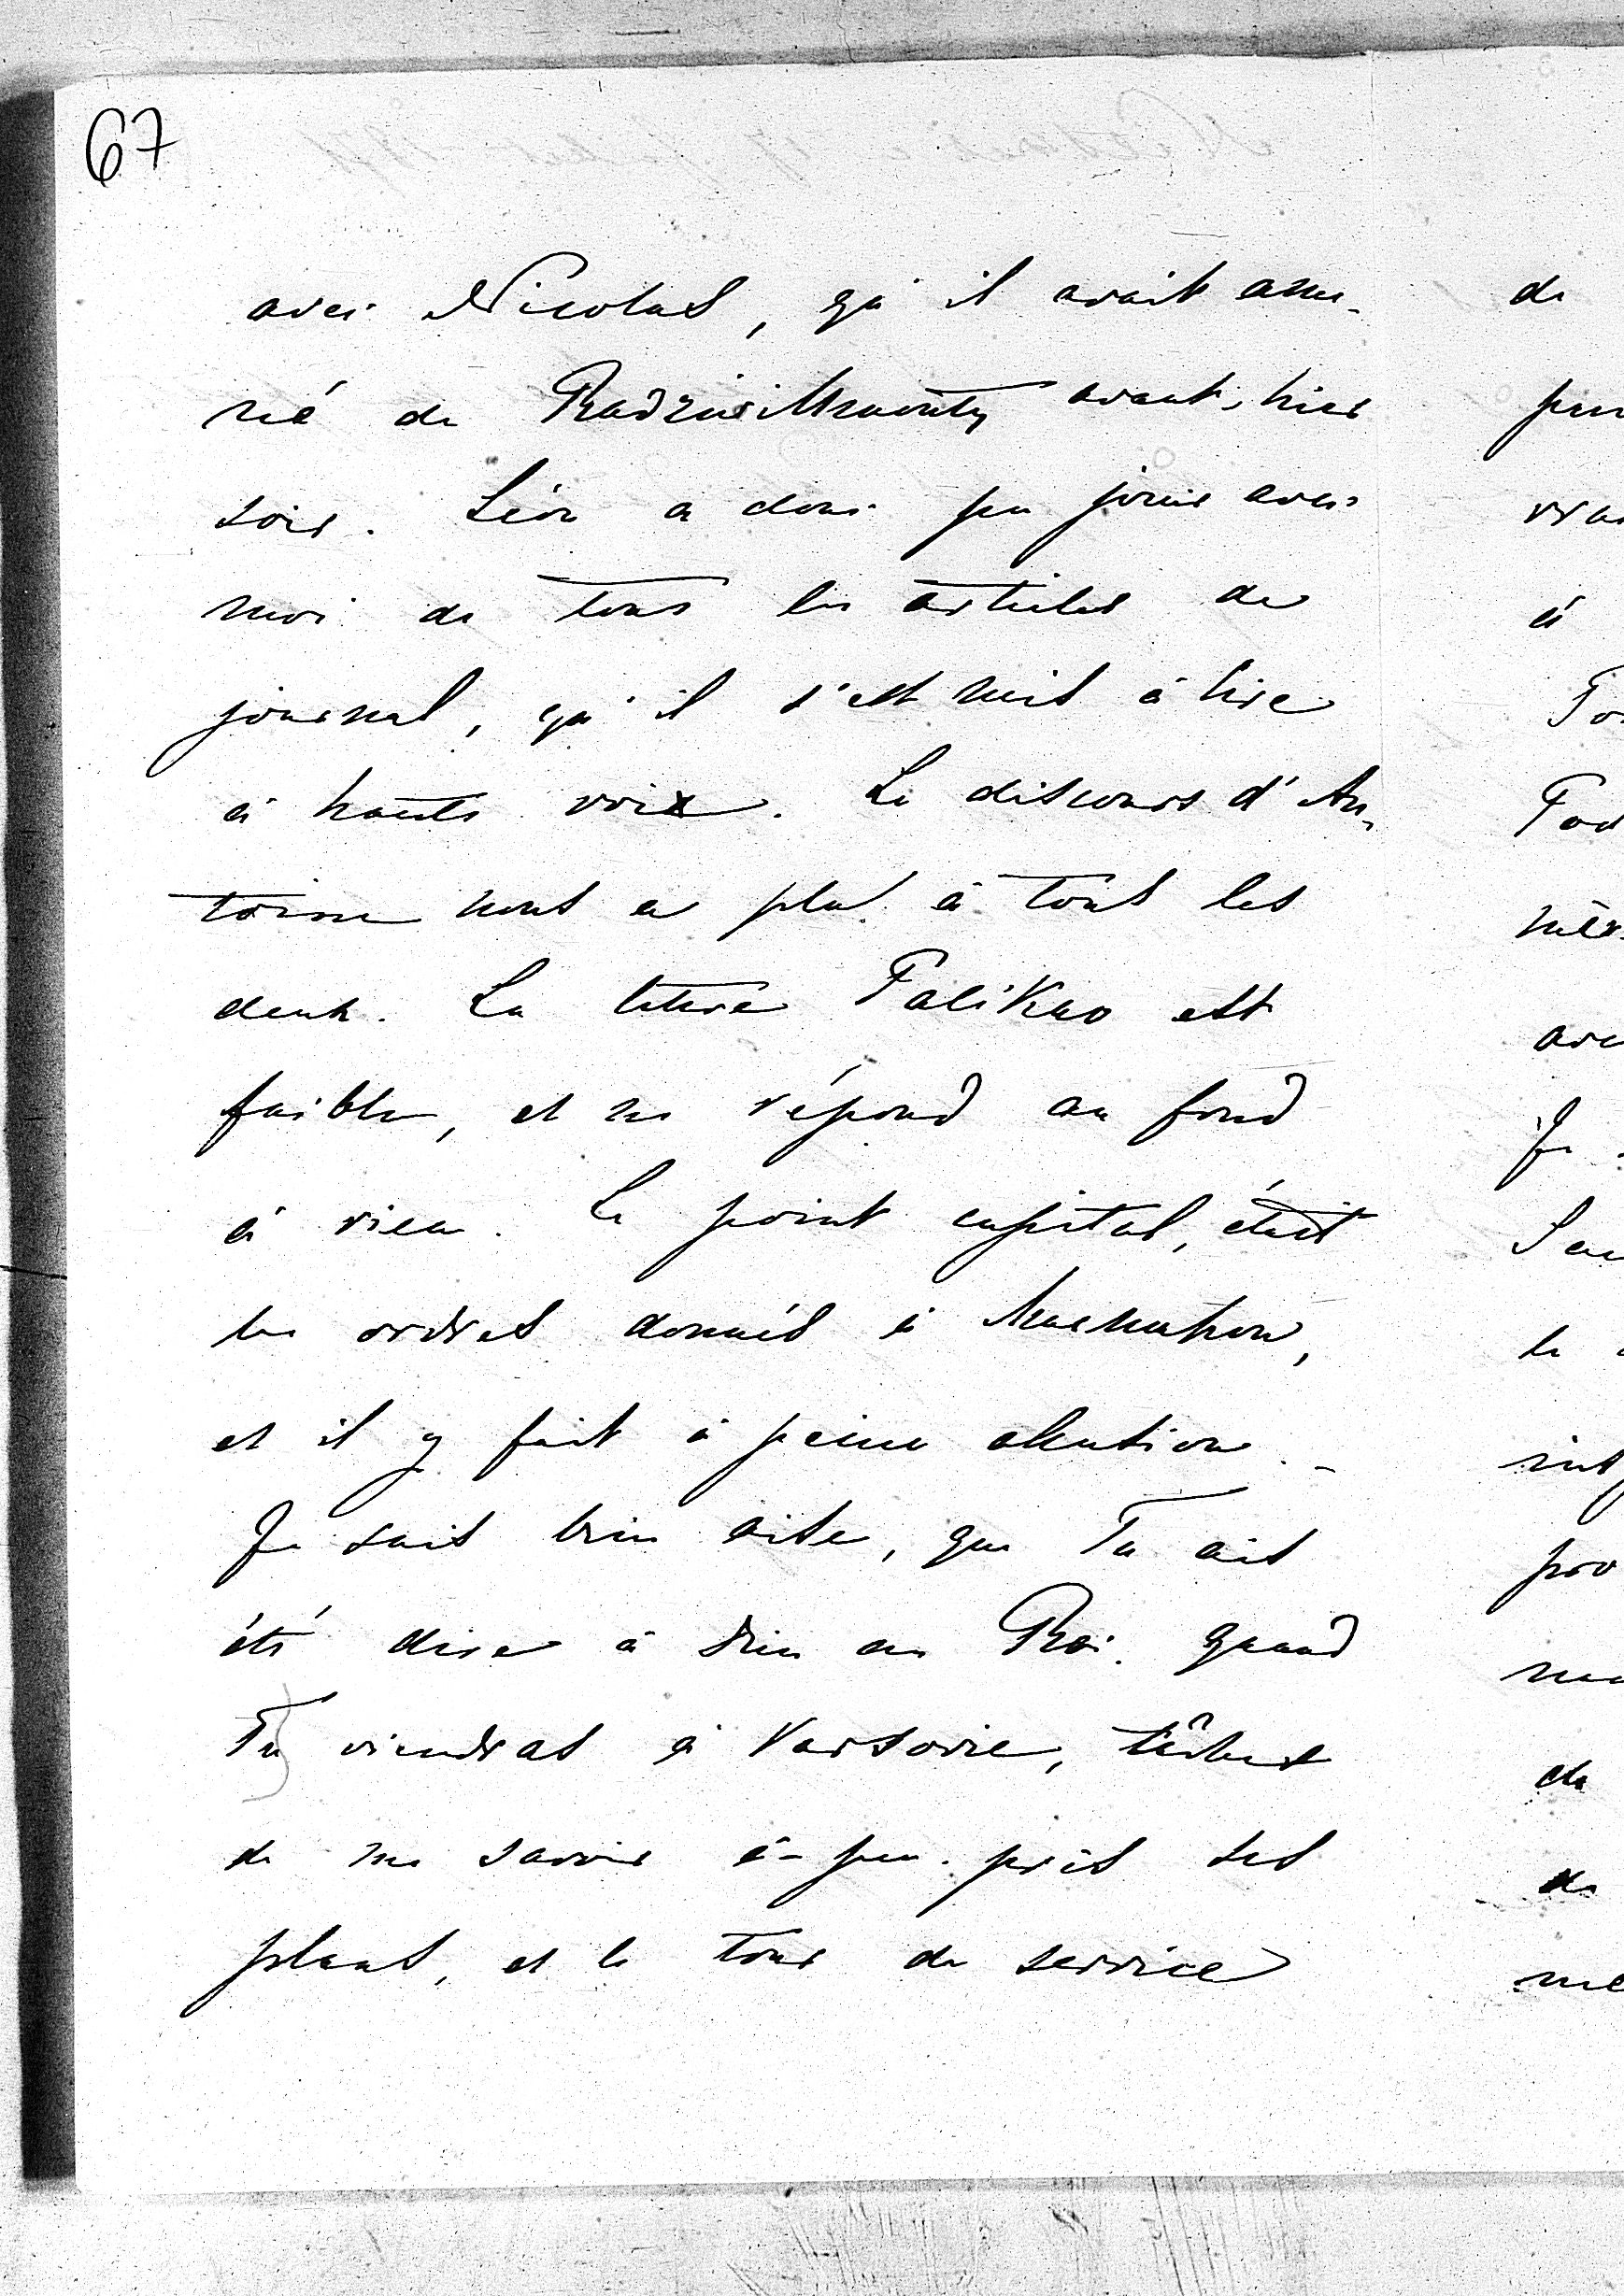 67
avec Nicolas, qu'il avait ame-
né de Radziwillmonty avant-hier
soir. Léon a donc pu jouir avec
moi de tous les articles de
journal, qu'il s'est mis à lire
à haute voix. Le discours d'An-
toine nous a plu à tous les
deux. La lettre Palikao est
faible, et ne répond au fond
à rien. Le point capital, était
les ordres donnés à Macmahon,
et il y fait à peine allusion. -
Je suis bien aise, que Tu ais
été dire à Dieu au Roi. Quand
Tu viendras à Varsovie, tâches
de me savoir à-peu-près ses
plans, et le tour de service
de
à
Je
le
de
de